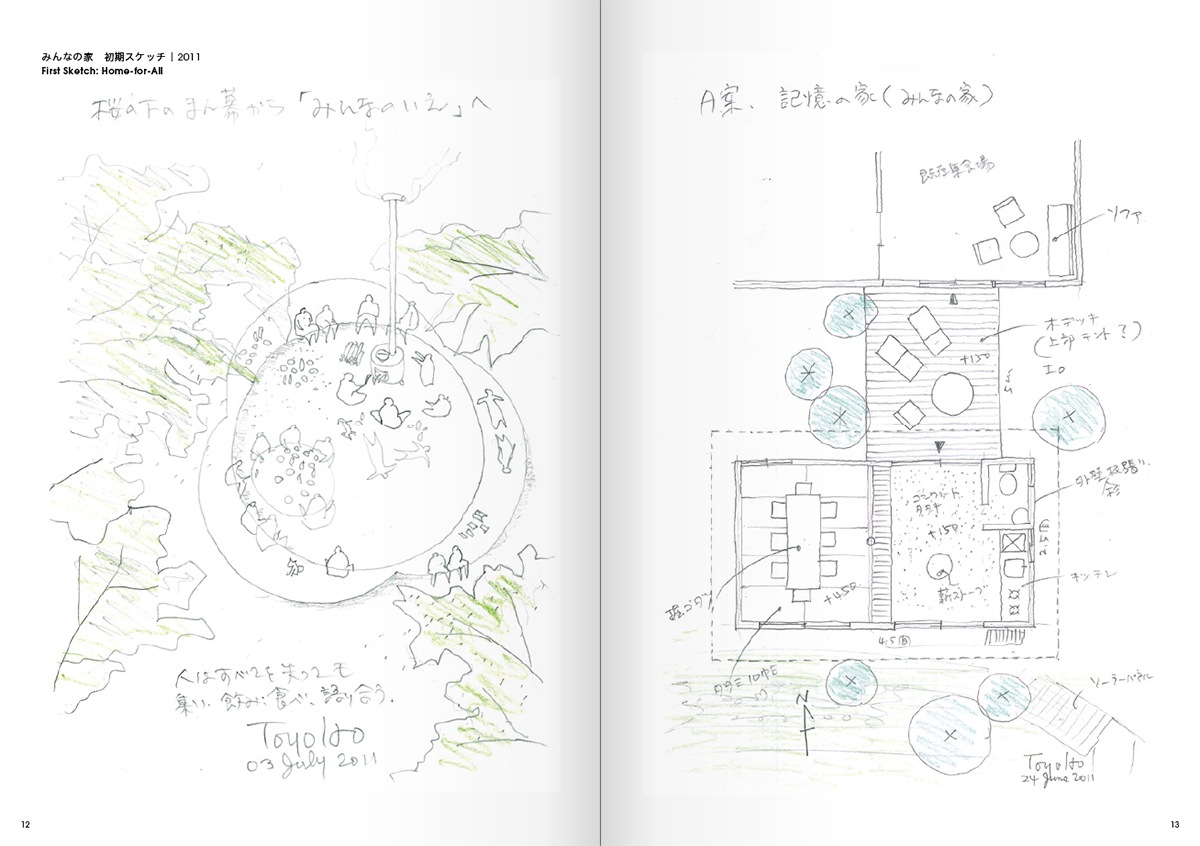 みんなの家　初期スケッチ｜2011
First Sketch: Home-for-All
桜の下のまん幕から「みんなのいえ」へ
人はすべてを失っても
集い、飲み、食べ、語り合う.
Toyo Ito
03 July 2011
12
A案. 記憶の家(みんなの家)
既存集会場
ソファ
木デッキ
(上部テント?)
+150
コンクリート
タタキ
+150
薪ストーブ
キッチン
掘ゴタツ
+450
4.5間
2.5間
タタミ10帖
N
ソーラーパネル
Toyo Ito
24 June 2011
13